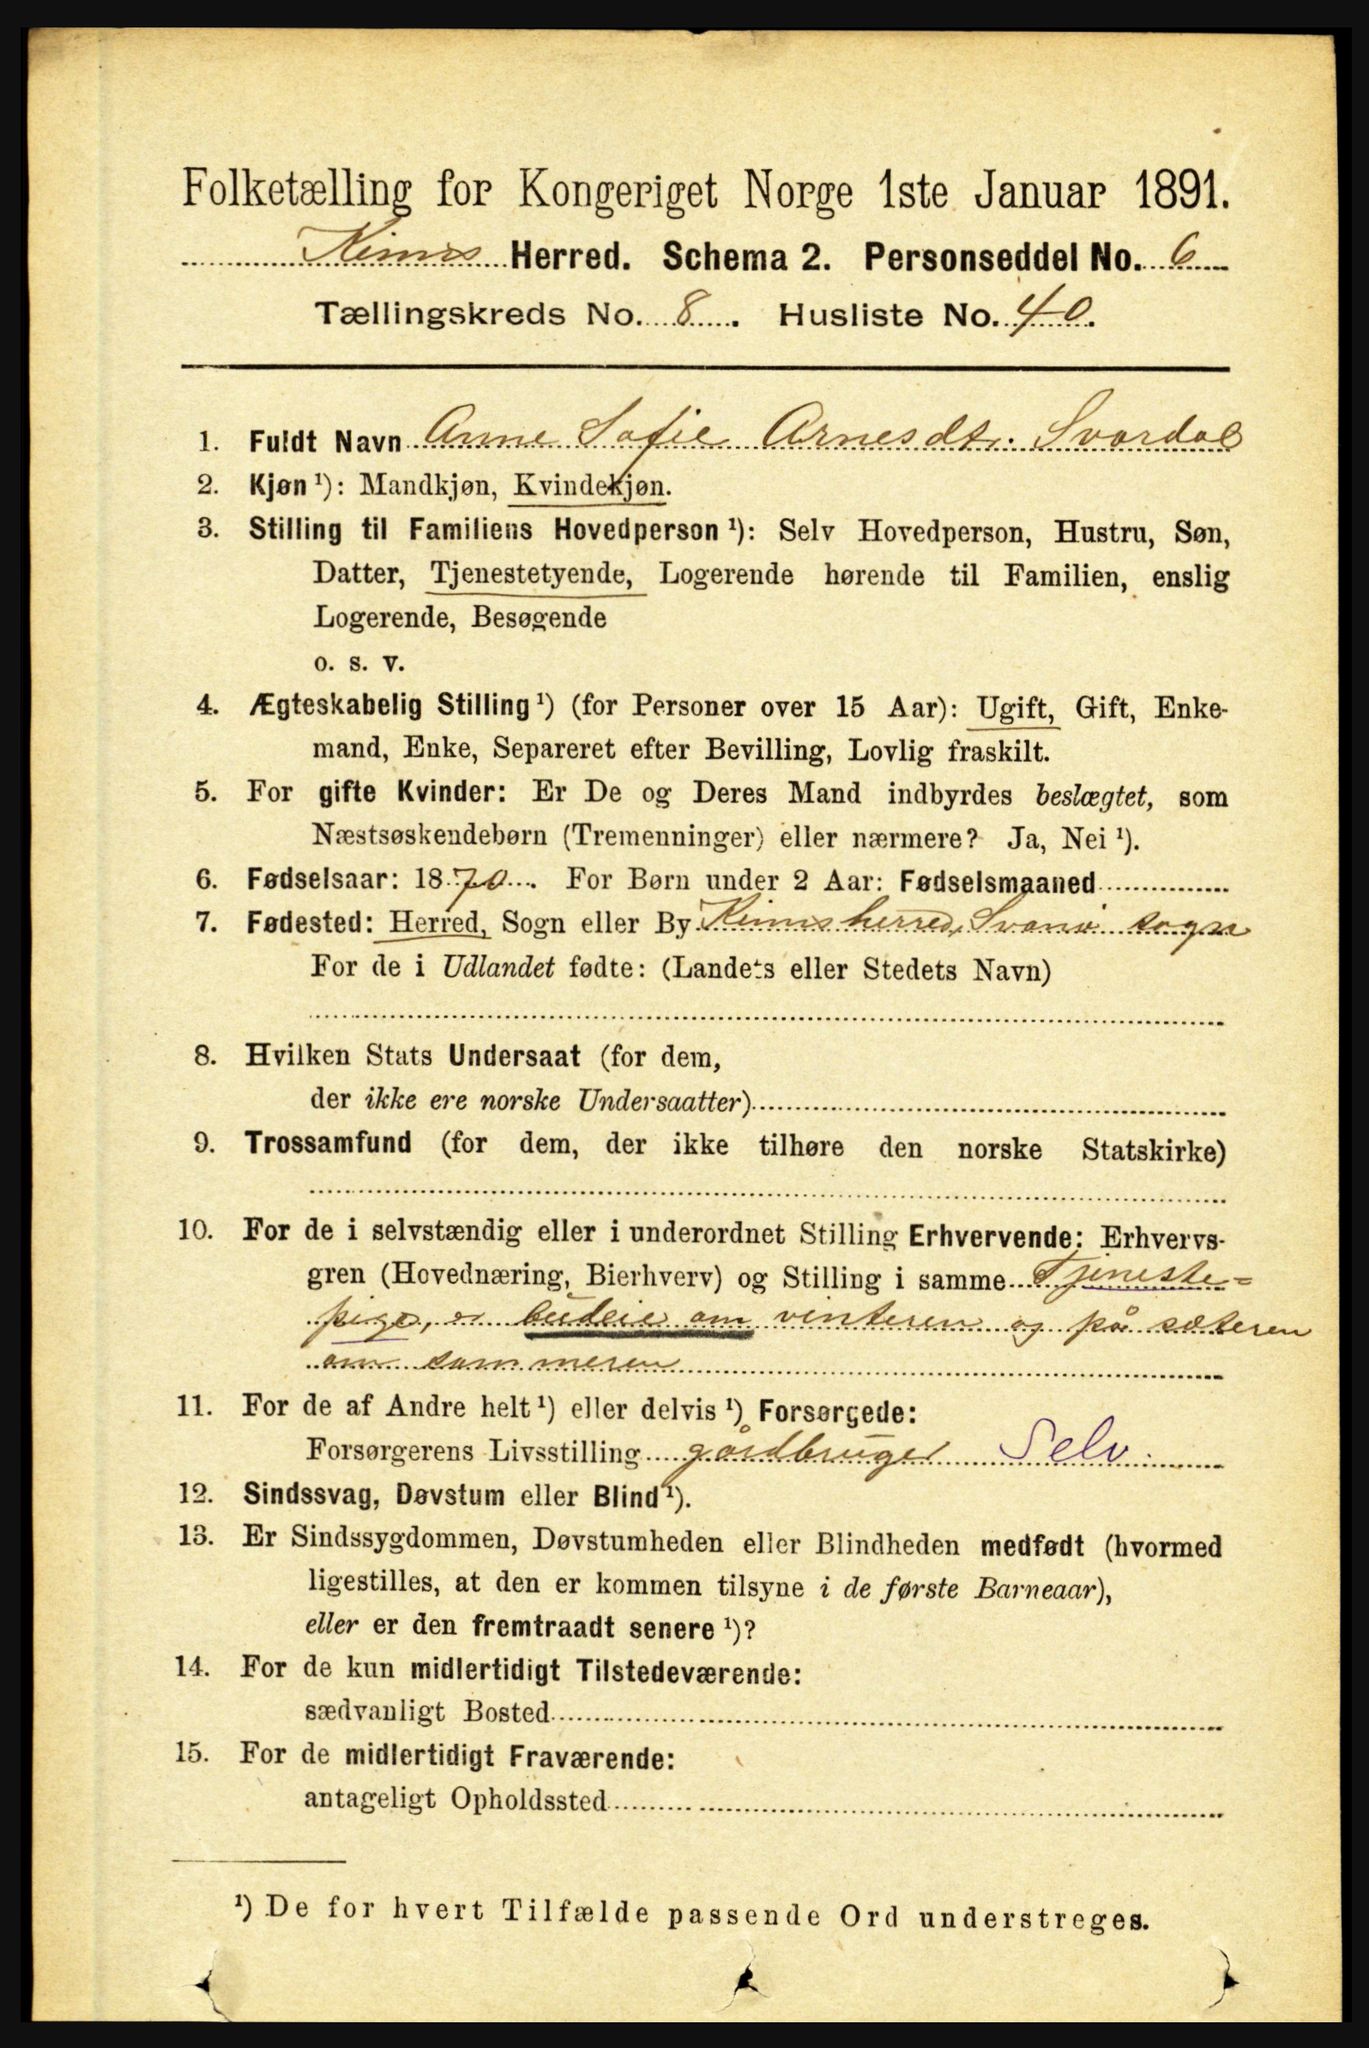 Folketælling for Kongeriget Norge 1ste Januar 1891.
Kinns Herred. Schema 2. Personseddel No. 6
Tællingskreds No. 8. Husliste No. 40.
1. Fuldt Navn Anne Sofie Arnesdtr. Svardal
2. Kjøn ¹): Mandkjøn, Kvindekjøn.
3. Stilling til Familiens Hovedperson ¹): Selv Hovedperson, Hustru, Søn,
Datter, Tjenestetyende, Logerende hørende til Familien, enslig
Logerende, Besøgende
o. s. v.
4. Ægteskabelig Stilling ¹) (for Personer over 15 Aar): Ugift, Gift, Enke-
mand, Enke, Separeret efter Bevilling, Lovlig fraskilt.
5. For gifte Kvinder: Er De og Deres Mand indbyrdes beslægtet, som
Næstsøskendebørn (Tremenninger) eller nærmere? Ja, Nei ¹).
6. Fødselsaar: 1870. For Børn under 2 Aar: Fødselsmaaned
7. Fødested: Herred, Sogn eller By Kinns herred, Svanø sogn
For de i Udlandet fødte: (Landets eller Stedets Navn)
8. Hvilken Stats Undersaat (for dem,
der ikke ere norske Undersaatter)
9. Trossamfund (for dem, der ikke tilhøre den norske Statskirke)
10. For de i selvstændig eller i underordnet Stilling Erhvervende: Erhvervs-
gren (Hovednæring, Bierhverv) og Stilling i samme Tjeneste-
pige, er budeie om vinteren og på sæteren
om sommeren
11. For de af Andre helt ¹) eller delvis ¹) Forsørgede:
Forsørgerens Livsstilling gårdbruger Selv.
12. Sindssvag, Døvstum eller Blind ¹).
13. Er Sindssygdommen, Døvstumheden eller Blindheden medfødt (hvormed
ligestilles, at den er kommen tilsyne i de første Barneaar),
eller er den fremtraadt senere ¹)?
14. For de kun midlertidigt Tilstedeværende:
sædvanligt Bosted
15. For de midlertidigt Fraværende:
antageligt Opholdssted
¹) De for hvert Tilfælde passende Ord understreges.